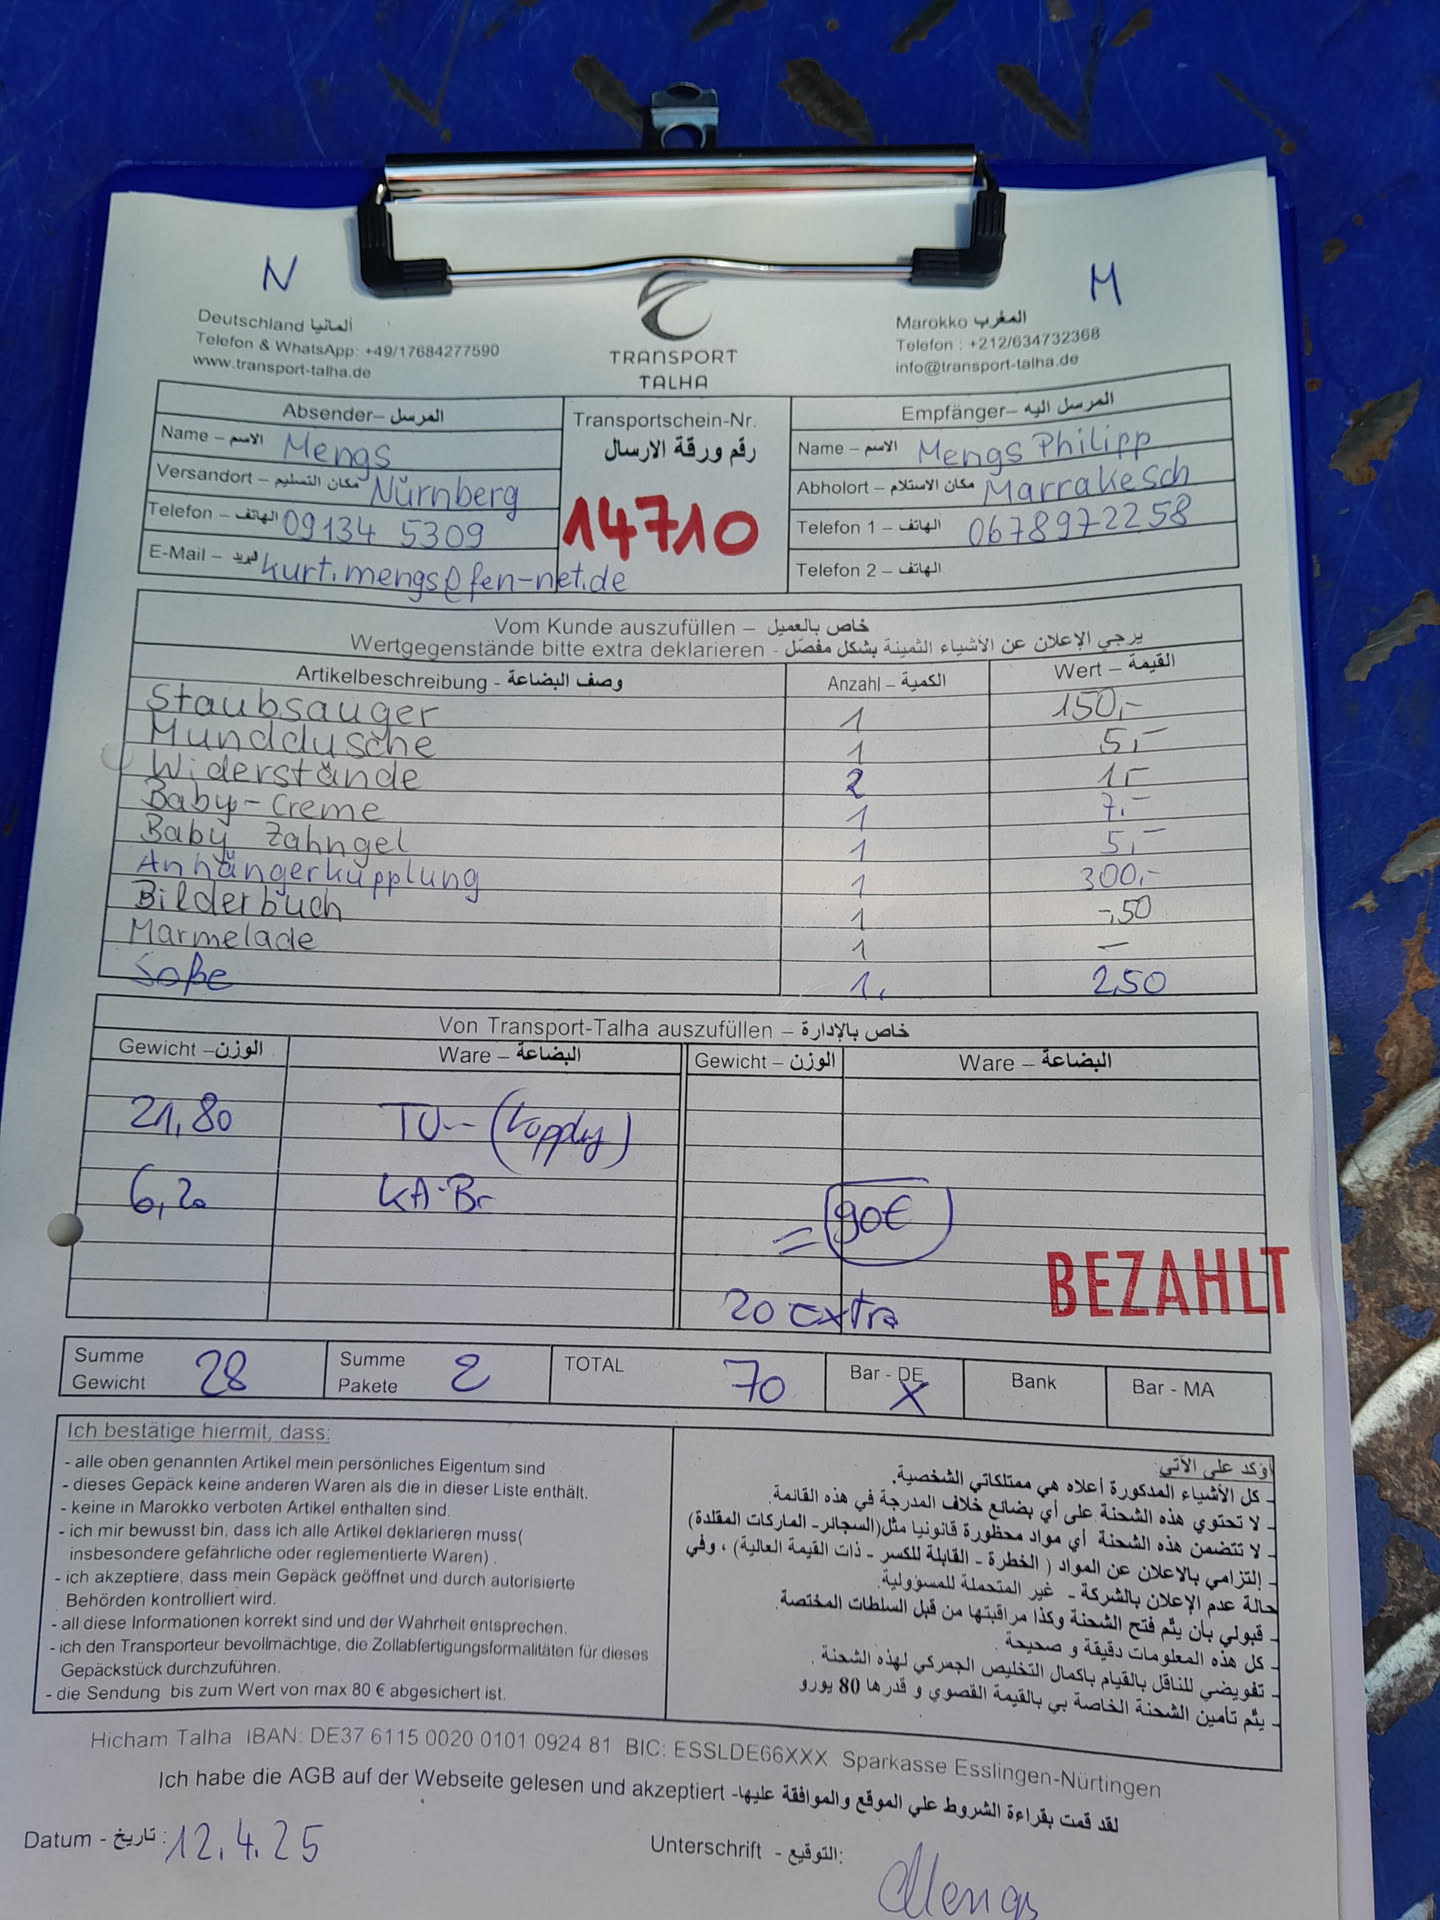 N
M
Deutschland ألمانيا
Telefon & WhatsApp: +49/17684277590
www.transport-talha.de
TRANSPORT
TALHA
Marokko المغرب
Telefon : +212/634732368
info@transport-talha.de
Absender– المرسل
Name – الاسم Mengs
Versandort – مكان التسليم Nürnberg
Telefon – الهاتف 09134 5309
E-Mail – البريد kurt.mengs@fen-net.de
Transportschein-Nr.
رقم ورقة الارسال
14710
Empfänger– المرسل اليه
Name – الاسم Mengs Philipp
Abholort – مكان الاستلام Marrakesch
Telefon 1 – الهاتف 0678972258
Telefon 2 – الهاتف
Vom Kunde auszufüllen – خاص بالعميل
Wertgegenstände bitte extra deklarieren - يرجي الإعلان عن الأشياء الثمينة بشكل مفصّل
Artikelbeschreibung - وصف البضاعة Anzahl – الكمية Wert – القيمة
Staubsauger 1 150,-
Munddusche 1 5,-
Widerstände 2 1,-
Baby-Creme 1 7,-
Baby Zahngel 1 5,-
Anhängerkupplung 1 300,-
Bilderbuch 1 -,50
Marmelade 1 –
Soße 1, 2,50
Von Transport-Talha auszufüllen – خاص بالإدارة
Gewicht – الوزن Ware – البضاعة Gewicht – الوزن Ware – البضاعة
21,80
6,20 KA-Br
= 90€
20 extra
BEZAHLT
Summe Gewicht 28
Summe Pakete 2
TOTAL 70
Bar - DE X
Bank
Bar - MA
Ich bestätige hiermit, dass:
- alle oben genannten Artikel mein persönliches Eigentum sind
- dieses Gepäck keine anderen Waren als die in dieser Liste enthält.
- keine in Marokko verboten Artikel enthalten sind.
- ich mir bewusst bin, dass ich alle Artikel deklarieren muss(
insbesondere gefährliche oder reglementierte Waren) .
- ich akzeptiere, dass mein Gepäck geöffnet und durch autorisierte
Behörden kontrolliert wird.
- all diese Informationen korrekt sind und der Wahrheit entsprechen.
- ich den Transporteur bevollmächtige, die Zollabfertigungsformalitäten für dieses
Gepäckstück durchzuführen.
- die Sendung bis zum Wert von max 80 € abgesichert ist.
أؤكد على الآتي:
- كل الأشياء المدكورة أعلاه هي ممتلكاتي الشخصية.
- لا تحتوي هذه الشحنة على أي بضائع خلاف المدرجة في هذه القائمة.
- لا تتضمن هذه الشحنة أي مواد محظورة قانونيا مثل(السجائر- الماركات المقلدة)
- إلتزامي بالإعلان عن المواد ( الخطرة - القابلة للكسر - ذات القيمة العالية) ، وفي
حالة عدم الإعلان بالشركة - غير المتحملة للمسؤولية.
- قبولي بأن يتم فتح الشحنة وكذا مراقبتها من قبل السلطات المختصة.
- كل هذه المعلومات دقيقة و صحيحة.
- تفويضي للناقل بالقيام باكمال التخليص الجمركي لهذه الشحنة .
- يتم تأمين الشحنة الخاصة بي بالقيمة القصوي و قدرها 80 يورو
Hicham Talha IBAN: DE37 6115 0020 0101 0924 81 BIC: ESSLDE66XXX Sparkasse Esslingen-Nürtingen
Ich habe die AGB auf der Webseite gelesen und akzeptiert -لقد قمت بقراءة الشروط علي الموقع والموافقة عليها
Datum - تاريخ : 12.4.25
Unterschrift - التوقيع:
Mengs